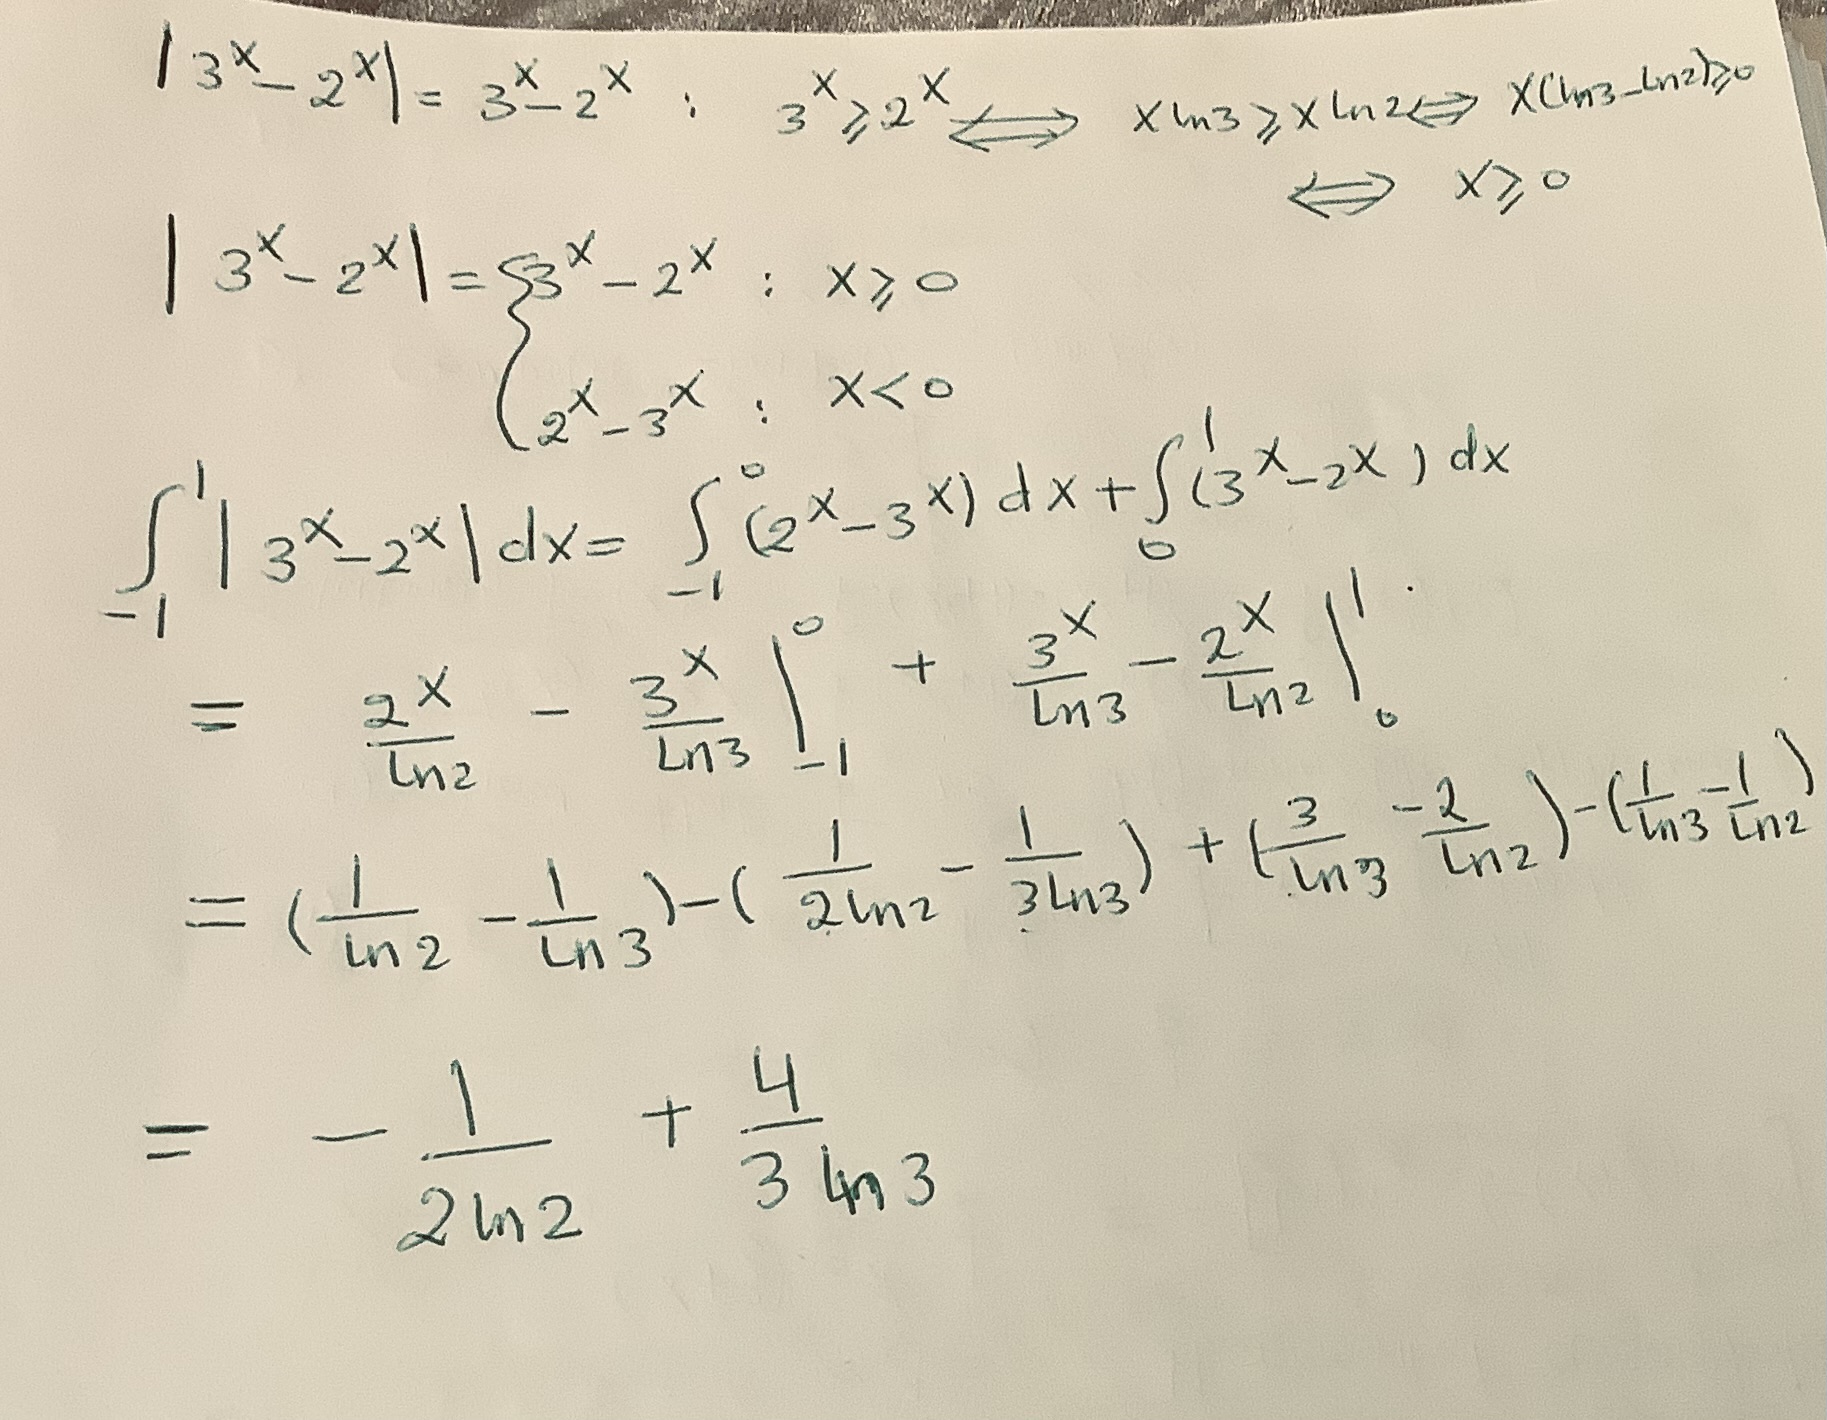 |3^x - 2^x| = 3^x - 2^x : 3^x ⩾ 2^x ⟺ x ln3 ⩾ x ln2 ⟺ x(ln3 - ln2) ⩾ 0
⟺ x ⩾ 0
|3^x - 2^x| = { 3^x - 2^x : x ⩾ 0
2^x - 3^x : x < 0
∫_{-1}^{1} |3^x - 2^x| dx = ∫_{-1}^{0} (2^x - 3^x) dx + ∫_{0}^{1} (3^x - 2^x) dx
= 2^x/ln2 - 3^x/ln3 |_{-1}^{0} + 3^x/ln3 - 2^x/ln2 |_{0}^{1}
= (1/ln2 - 1/ln3) - (1/(2 ln2) - 1/(3 ln3)) + (3/ln3 - 2/ln2) - (1/ln3 - 1/ln2)
= - 1/(2 ln2) + 4/(3 ln3)